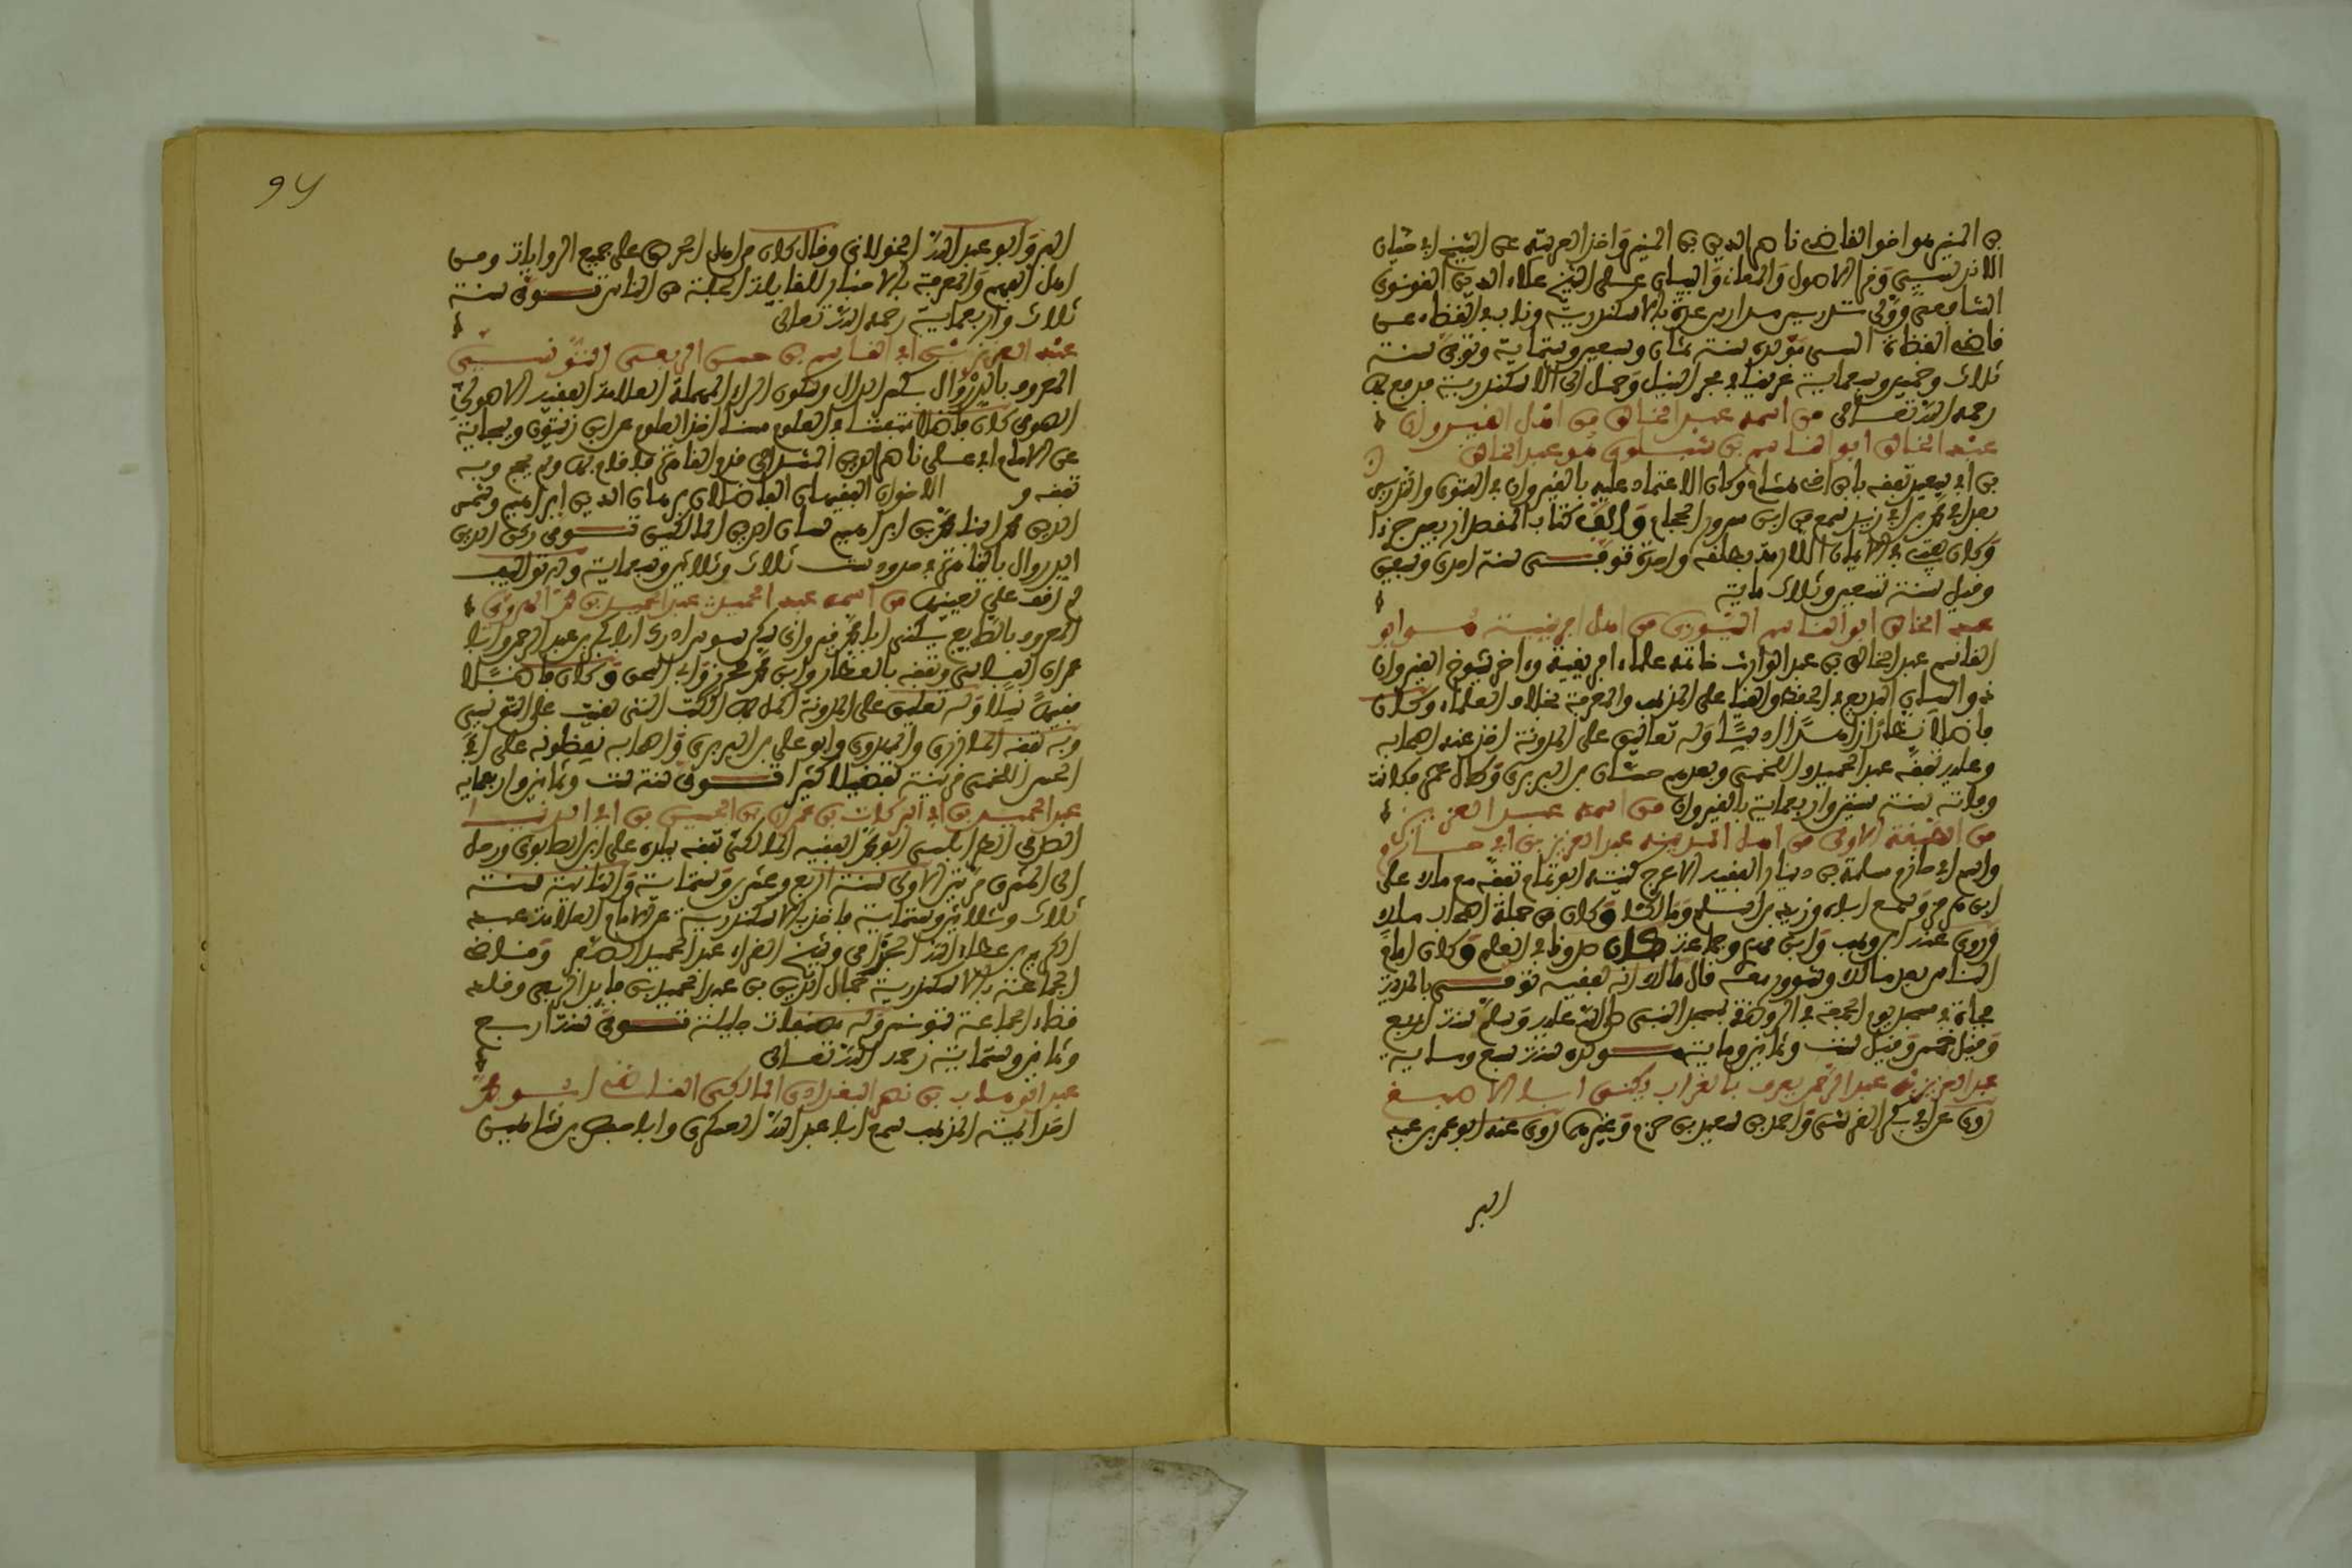 بن المنير هو اخو القاضي ناصر الدين بن المنير واخذ العربية عن الشيخ ابي حيان
الاندلسي وقرا الاصول والمعاني والبيان على الشيخ علاء الدين القونوي
الشافعي وولي تدريس مدارس عدة بالاسكندرية وناب في القضاء عن
قاضي القضاة التنسي مولده سنة ثمان وسبعين وستماية وتوفي سنة
ثلاث وخمسين وسبعماية غريقا في بحر النيل وحمل الى الاسكندرية فدفع بها
رحمه الله تعالى من اسمه عبد الخالق من اهل القيروان
عبد الخالق ابو القاسم بن شبلون هو عبد الخالق
بن ابي سعيد تفقه بابن اخي هشام وكان الاعتماد عليه بالقيروان في الفتوى والتدريس
بعد ابي محمد بن ابي زيد سمع من ابن مسرور الحجام والف كتاب المقصد اربعين جزءا
وكان يفتي في الايمان اللازمة بطلقة واحدة توفي سنة احدى وتسعين
وقيل سنة تسعين وثلاث ماية
عبد الخالق ابو القاسم السيوري من اهل افريقية هو ابو
القاسم عبد الخالق بن عبد الوارث خاتمة علماء افريقية واخر شيوخ القيروان
ذو البيان البديع في الحفظ والقيام على المذهب والمعرفة بخلاف العلماء وكان
فاضلا نظارا زاهدا اديبا وله تعاليق على المدونة اخذ عنه اصحابه
وعليه تفقه عبد الحميد واللخمي وبعدهم حسان بن البربري وطال عمره فكانت
وفاته سنة ستين واربعماية بالقيروان من اسمه عبد العزيز
من الطبقة الاولى من اهل المدينة عبد العزيز بن ابي حازم
واسم ابي حازم سلمة بن دينار الفقيه الاعرج كنيته ابو تمام تفقه مع مالك على
ابن هرمز وسمع اباه وزيد بن اسلم ومالكا وكان من جملة اصحاب مالك
وروى عنه ابن وهب وابن مهدي وجماعة كان صدوقا في العلم وكان امام
الناس بعد مالك وشوور معه قال مالك انه لفقيه توفي بالمدينة
فجاة في سجدة يوم الجمعة في الروضة بمسجد النبي صلى الله عليه وسلم سنة اربع
وقيل خمس وقيل ست وثمانين وماية مولده سنة سبع وماية
عبد العزيز بن عبد الرحمن يعرف بالغراب يكنى ابا الاصبغ
روى عن ابي بكر القرشي واحمد بن سعيد بن حزم وغيرهم روى عنه ابو عمر بن عبد
البر
94
البر وابو عبد الله الخولاني وقال كان من اهل الحرص على جميع الروايات ومن
اهل الفهم والمعرفة بالاختيار للقا جلة من الناس توفي سنة
ثلاث واربعماية رحمه الله تعالى
عبد العزيز بن ابي القاسم بن حسن الربعي التونسي
المعروف بالدروال بكسر الدال وسكون الراء المهملة العلامة الفقيه الاصولي
الصوفي كان فاضلا متفننا في العلوم اخذ العلوم عن ابن زيتون وبجاية
عن الامام ابي علي ناصر الدين المشدالي قدم القاهرة فاقام بها ولم يحج وبه
تفقه و الاخوان الفقيهان الفاضلان برهان الدين ابراهيم وشمس
الدين محمد ابنا محمد بن ابراهيم الدين المالكيين توفي ركن الدين
الدروال بالقاهرة في حدود سنة ثلاث وثلاثين وسبعماية وله تواليف
لم اقف على تعيينها من اسمه عبد الحميد عبد الحميد بن محمد الهروي
المعروف بالصايغ يكنى ابا محمد قيرواني سكن سوسة ادرك ابا بكر بن عبد الرحمن وابا
عمران الفاسي وتفقه بالعطار وابن محرز وابي اسحق وكان فاضلا
فقيها نبيلا وله تعليق على المدونة اكمل بها الكتب التي بقيت على التونسي
وبه تفقه المازري والمهدوي وابو علي بن البربري واصحابه يفضلونه على ابي
الحسن اللخمي قرينه تفضيلا كثيرا توفي سنة ست وثمانين واربعماية
عبد الحميد بن ابي البركات بن عمران بن الحسين بن ابي الدنيا
الصدفي الطرابلسي ابو محمد الفقيه المالكي تفقه ببلده على ابن الصابوني ورحل
الى المشرق مرتين الاولى سنة اربع وعشرين وستماية والثانية سنة
ثلاث وثلاثين وستماية فاخذ بالاسكندرية عن الامام العلامة عبد
الكريم بن عطاء الله الجذامي وشيخ القراء عبد الحميد الصفراوي وقاضي
الجماعة بالاسكندرية جمال الدين بن عبد الحميد بن فايد الربعي وقلد
قضاء الجماعة بتونس وله مصنفات جليلة توفي سنة اربع
وثمانين وستماية رحمه الله تعالى
عبد الوهاب بن نصر البغدادي المالكي القاضي ابو محمد
احد ائمة المذهب سمع ابا عبد الله العسكري وابا حفص بن شاهين